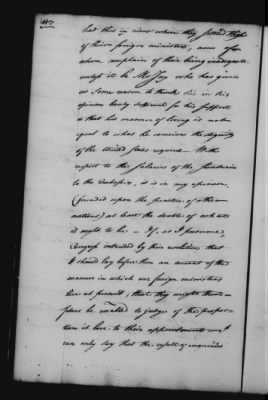 but this in cases when they joined those
of their foreign ministers, none of
whom complain of their being inadequate
unless it be Mr Jay who has given
us some reason to think his in his
opinion barely sufficient for his support
& that his manner of living is not
equal to what he conceives the dignity
of the United States requires — With
respect to the Salaries of the Secretaries
to the Embassy, it is in my opinion,
(founded upon the practice of other
nations) at least the double of what
it ought to be — If, as I presume,
Congress intended by their resolution that
I should lay before them an account of the
manner in which our foreign ministers
live at present, that they might there-
fore be enabled to judge of the propor-
tion it bore to their appointments — I
can only say that the result of enquiries